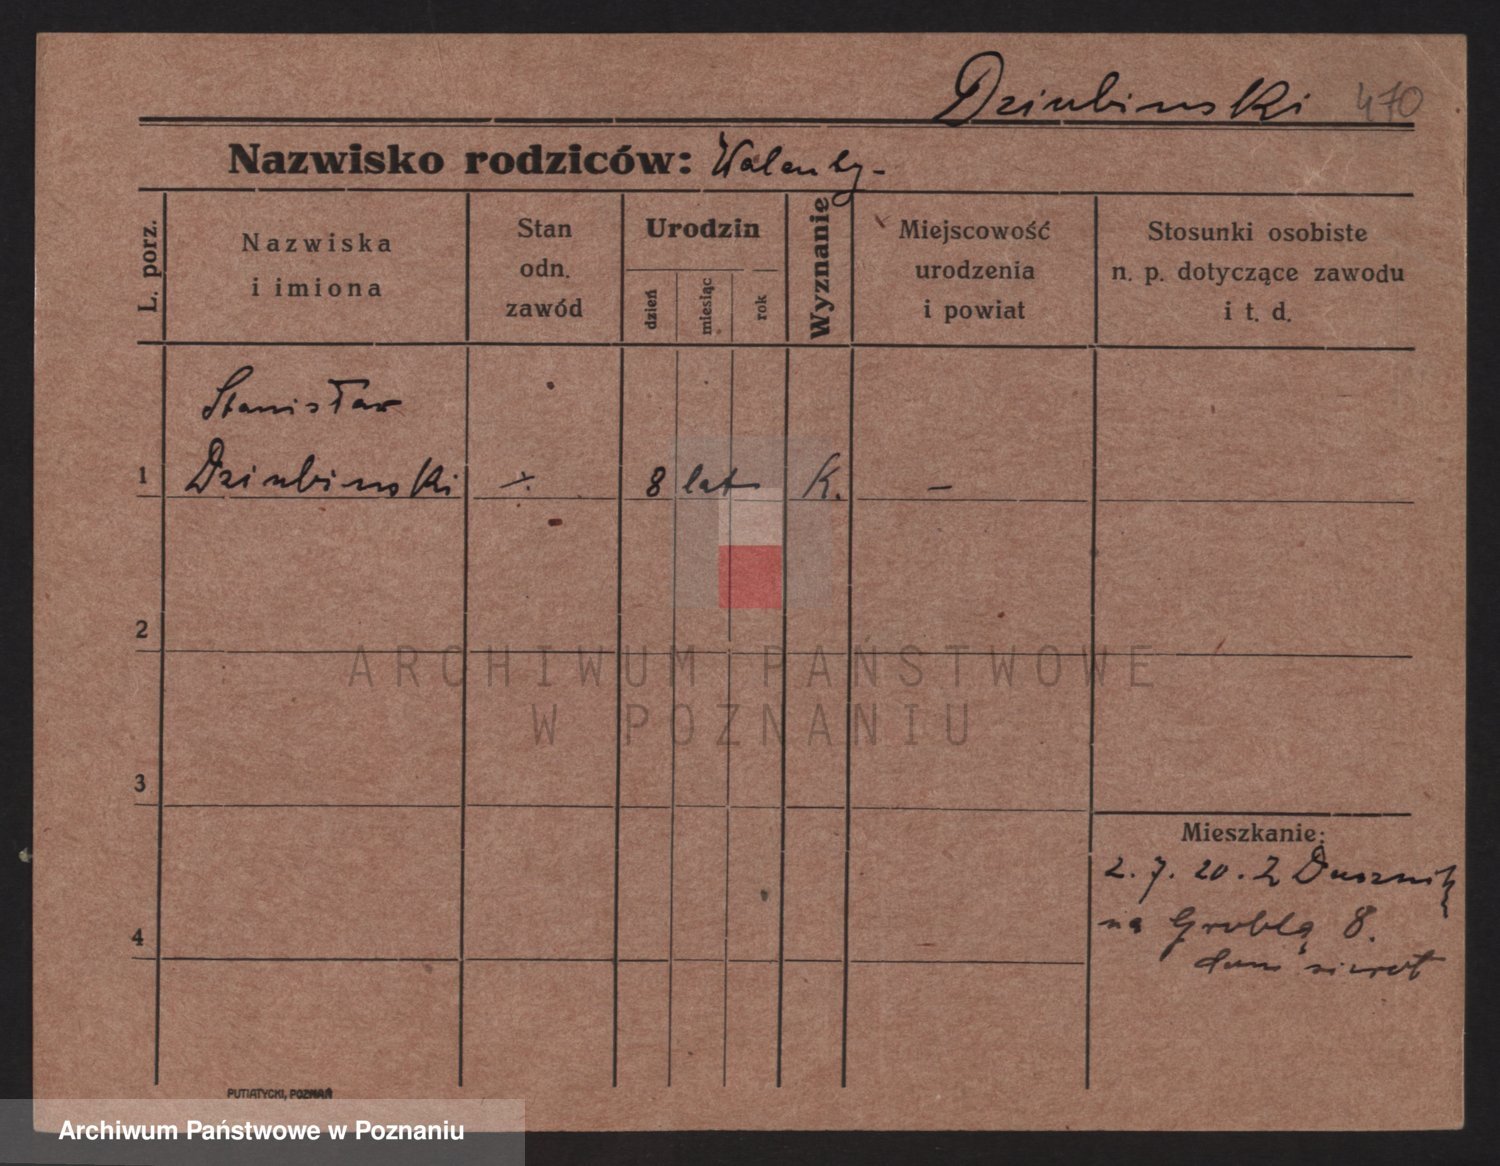 Dziubinski 470
Nazwisko rodziców: Walenty.
L. porz.
Nazwiska
i imiona
Stan
odn.
zawód
Urodzin
dzień
miesiąc
rok
Wyznanie
Miejscowość
urodzenia
i powiat
Stosunki osobiste
n. p. dotyczące zawodu
i t. d.
Stanisław
1 Dziubinski 8 lat K. —
2
3
4
Mieszkanie:
2. 7. 20. Z Dusznik
na Groblą 8.
dom sierot
PUTIATYCKI, POZNAŃ
ARCHIWUM PAŃSTWOWE
W POZNANIU
Archiwum Państwowe w Poznaniu